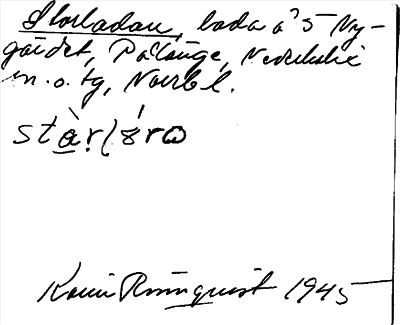 Storladan, lada å 5 Ny-
gärdet, Pålänge, Nederkalix
m. o. tg, Norrb l.
stàr(lα̇rω
Karin Rönnquist 1945